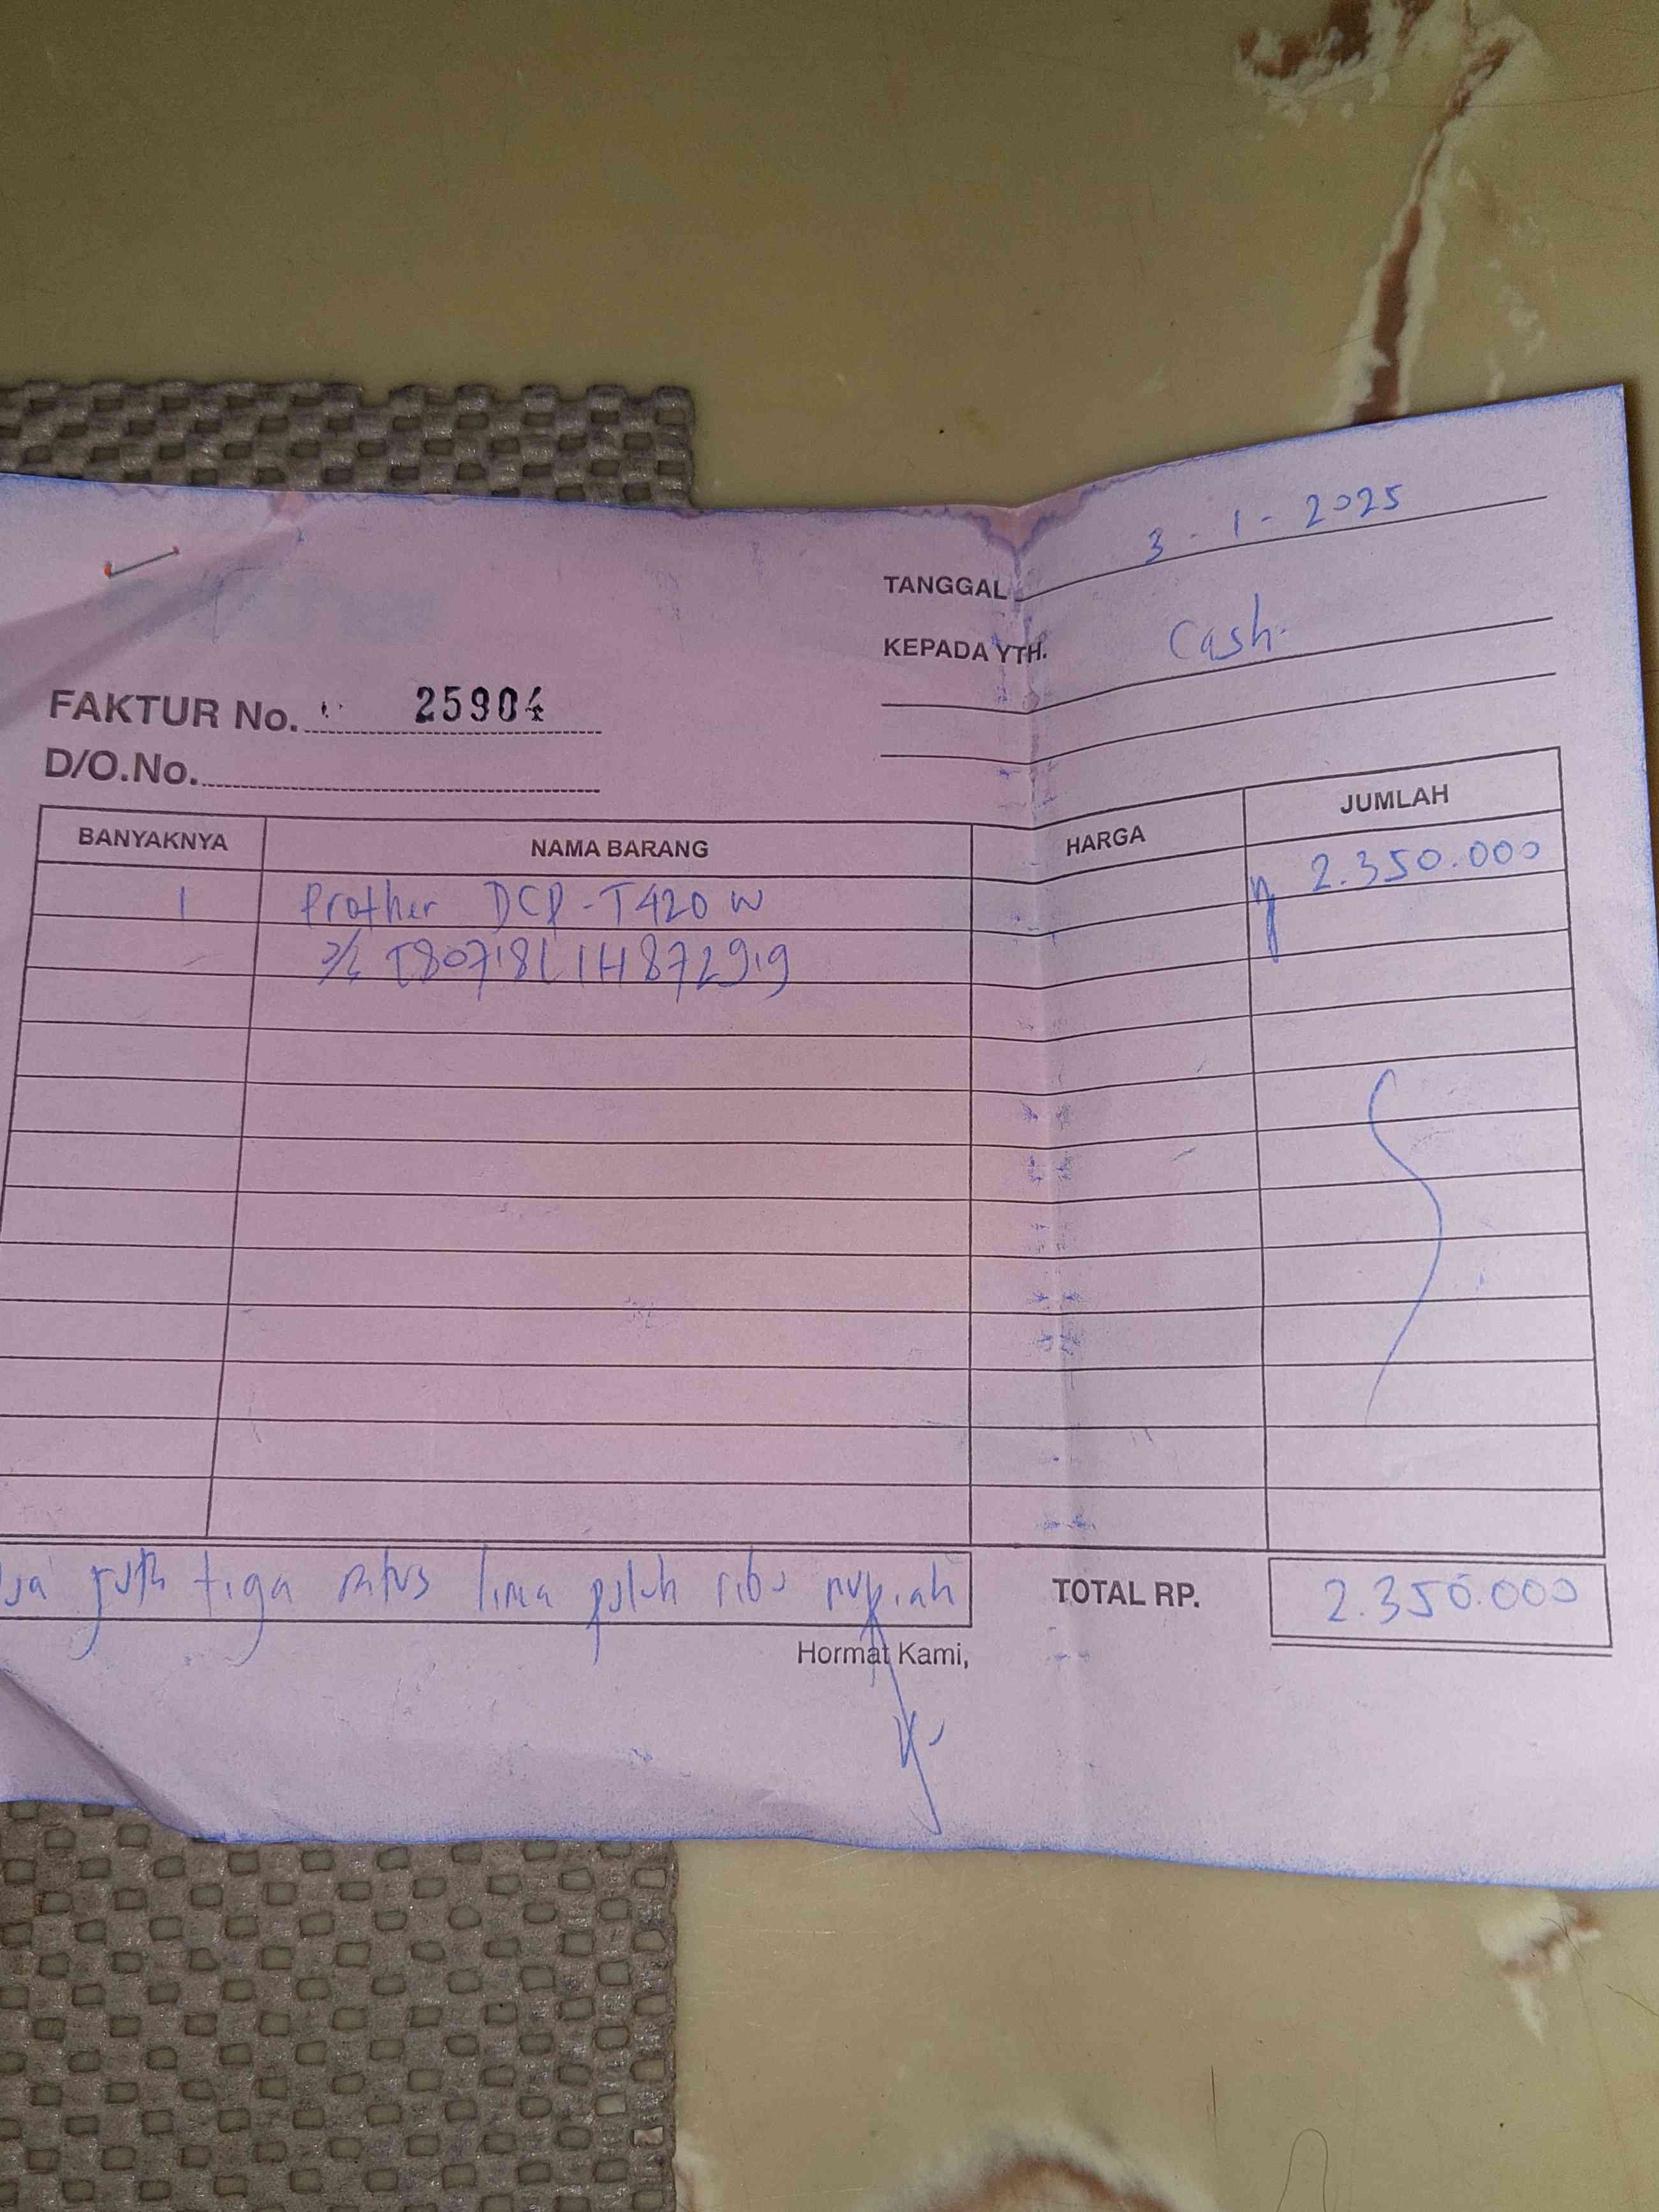 TANGGAL 3-1-2025
KEPADA YTH. Cash.
FAKTUR No. 25904
D/O.No.
BANYAKNYA NAMA BARANG HARGA JUMLAH
1 Brother DCP-T420W 2.350.000
juta tiga ratus lima puluh ribu rupiah TOTAL RP. 2.350.000
Hormat Kami,